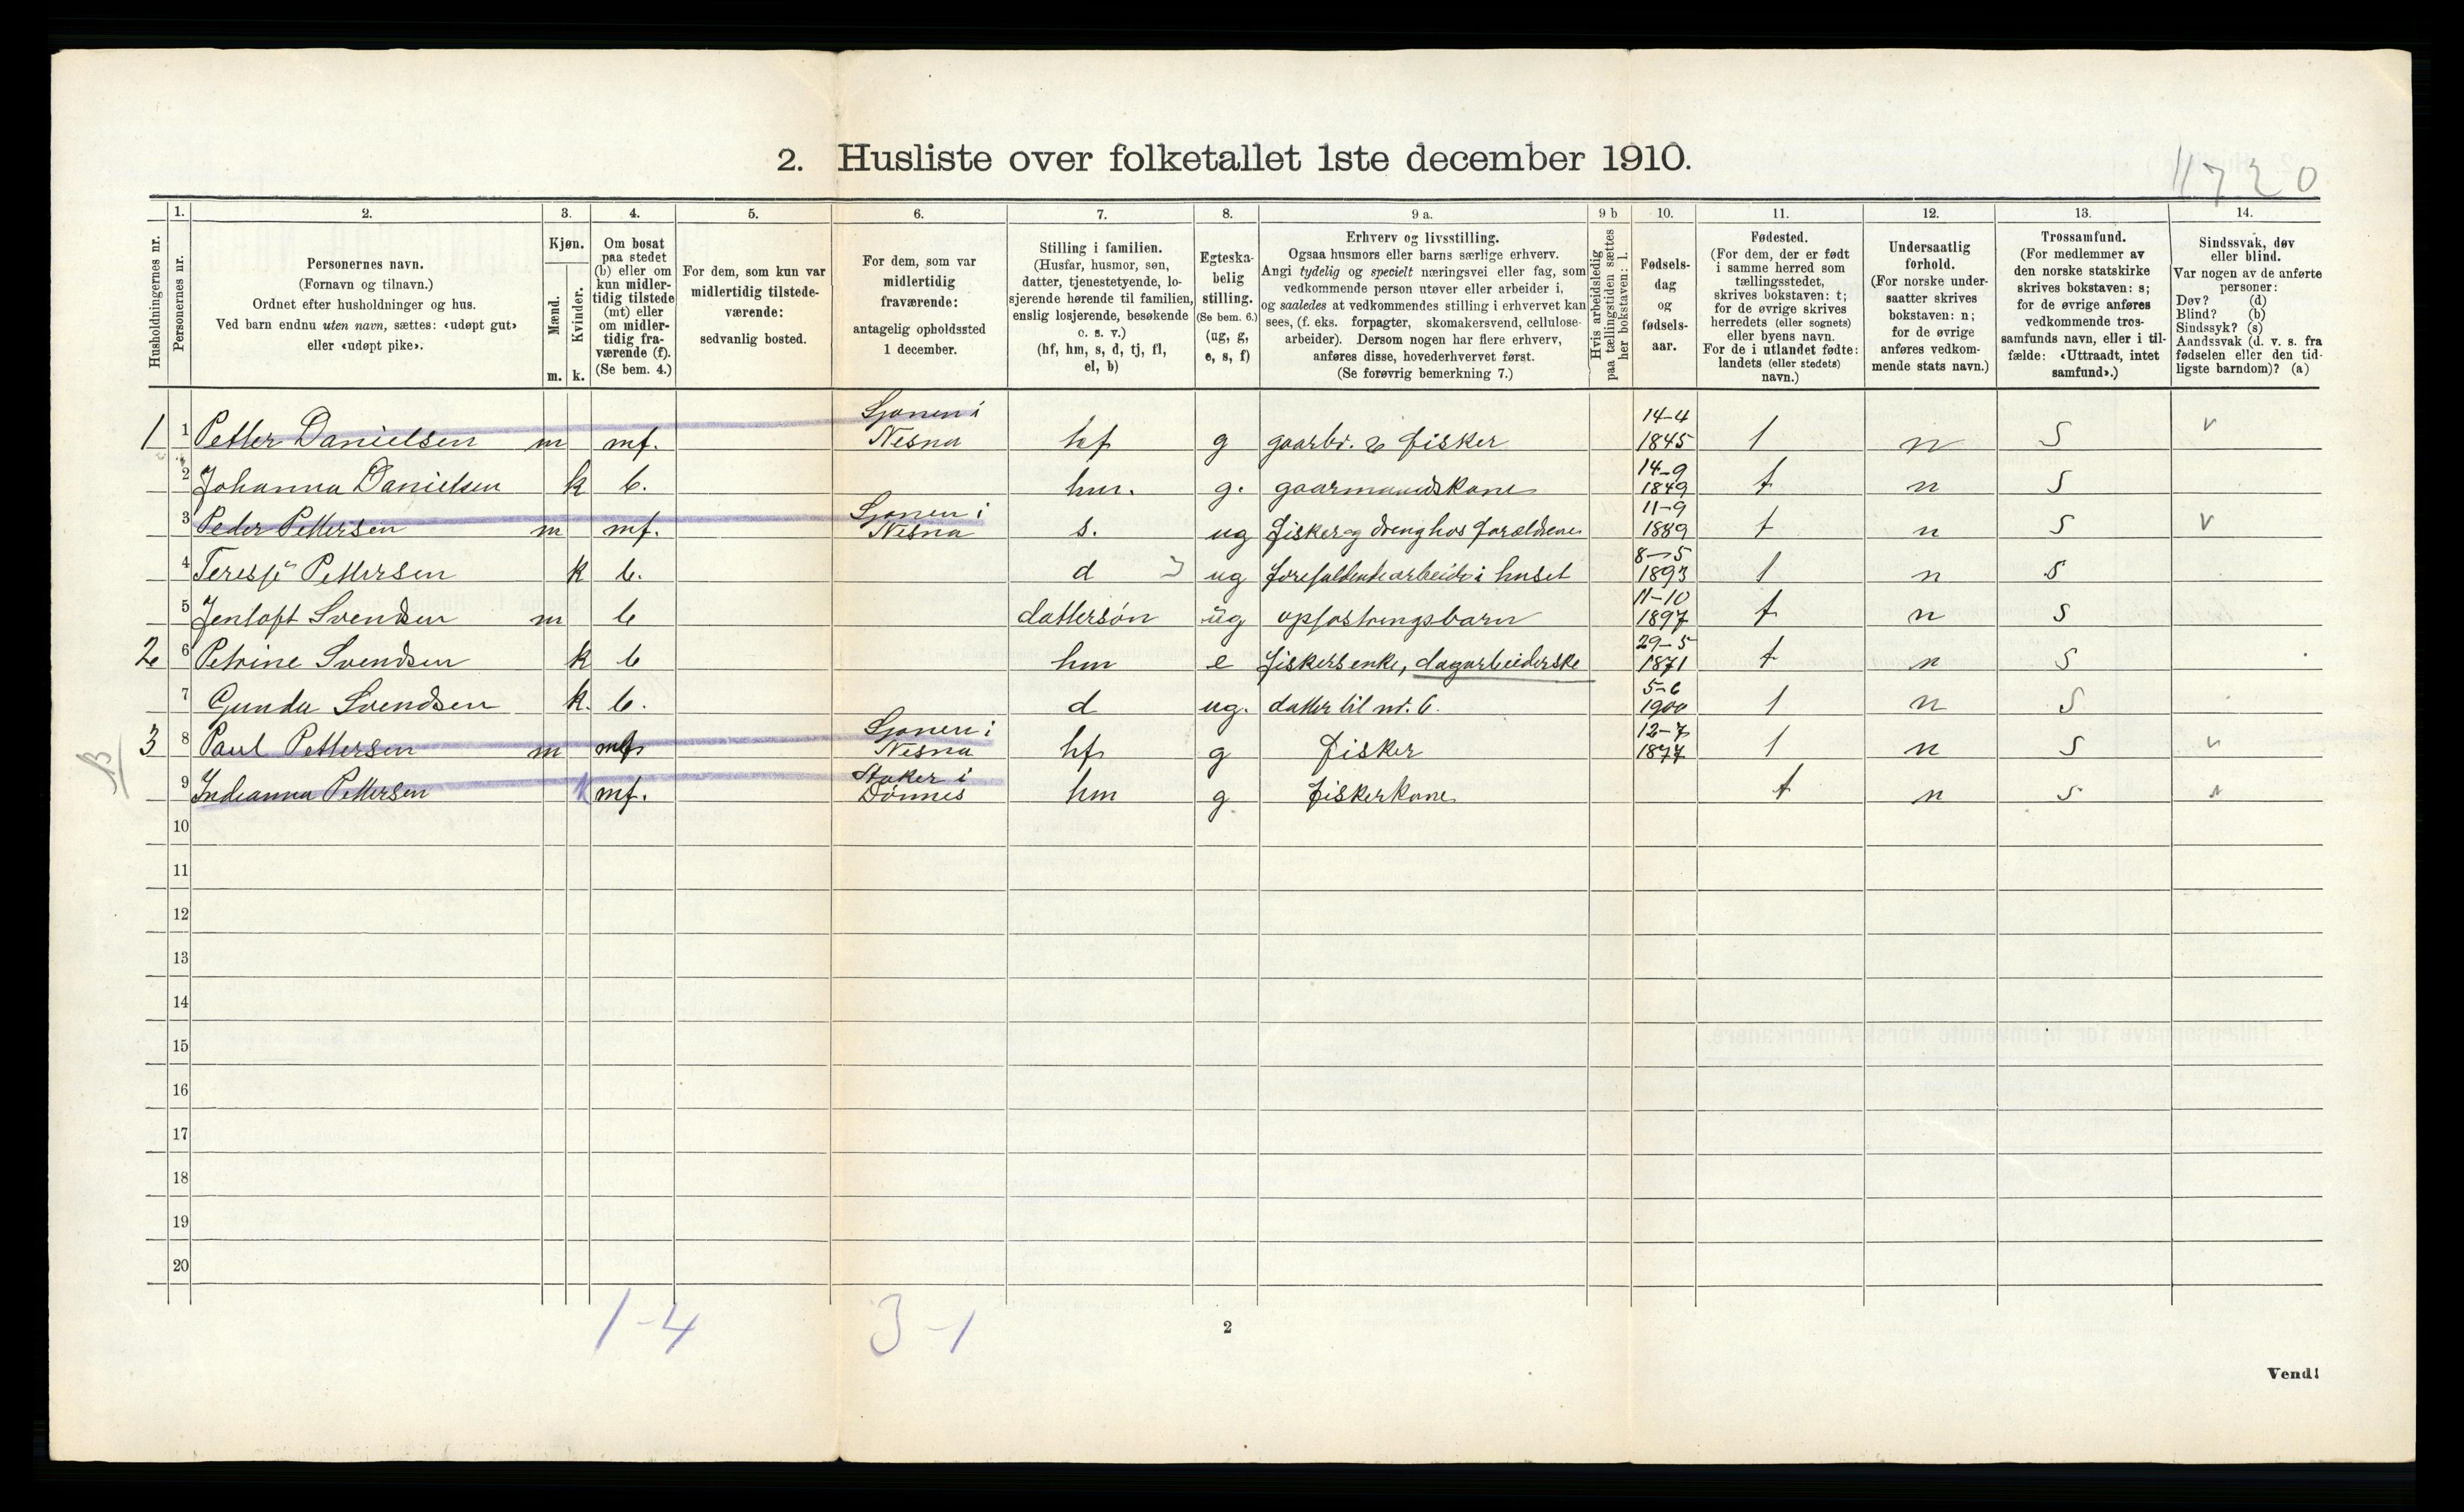 2. Husliste over folketallet 1ste december 1910.
11720
Husholdningernes nr.
1.
Personernes nr.
2.
Personernes navn.
(Fornavn og tilnavn.)
Ordnet efter husholdninger og hus.
Ved barn endnu uten navn, sættes: «udøpt gut»
eller «udøpt pike».
3.
Kjøn.
Mænd.
Kvinder.
m. k.
4.
Om bosat
paa stedet
(b) eller om
kun midler-
tidig tilstede
(mt) eller
om midler-
tidig fra-
værende (f).
(Se bem. 4.)
5.
For dem, som kun var
midlertidig tilstede-
værende:
sedvanlig bosted.
6.
For dem, som var
midlertidig
fraværende:
antagelig opholdssted
1 december.
7.
Stilling i familien.
(Husfar, husmor, søn,
datter, tjenestetyende, lo-
sjerende hørende til familien,
enslig losjerende, besøkende
o. s. v.)
(hf, hm, s, d, tj, fl,
el, b)
8.
Egteska-
belig
stilling.
(Se bem. 6.)
(ug, g,
e, s, f)
9 a.
Erhverv og livsstilling.
Ogsaa husmors eller barns særlige erhverv.
Angi tydelig og specielt næringsvei eller fag, som
vedkommende person utøver eller arbeider i,
og saaledes at vedkommendes stilling i erhvervet kan
sees, (f. eks. forpagter, skomakersvend, cellulose-
arbeider). Dersom nogen har flere erhverv,
anføres disse, hovederhvervet først.
(Se forøvrig bemerkning 7.)
9 b
Hvis arbeidsledig
paa tællingstiden sættes
her bokstaven: l.
10.
Fødsels-
dag
og
fødsels-
aar.
11.
Fødested.
(For dem, der er født
i samme herred som
tællingsstedet,
skrives bokstaven: t;
for de øvrige skrives
herredets (eller sognets)
eller byens navn.
For de i utlandet fødte:
landets (eller stedets)
navn.)
12.
Undersaatlig
forhold.
(For norske under-
saatter skrives
bokstaven: n;
for de øvrige
anføres vedkom-
mende stats navn.)
13.
Trossamfund.
(For medlemmer av
den norske statskirke
skrives bokstaven: s;
for de øvrige anføres
vedkommende tros-
samfunds navn, eller i til-
fælde: «Uttraadt, intet
samfund».)
14.
Sindssvak, døv
eller blind.
Var nogen av de anførte
personer:
Døv? (d)
Blind? (b)
Sindssyk? (s)
Aandssvak (d. v. s. fra
fødselen eller den tid-
ligste barndom)? (a)
1 1 Petter Danielsen m mf. Sjonen i Nesna hf g gaarbr. & fisker 14-4 1845 t n S v
2 Johanna Danielsen k b. hm. g. gaarmandskone 14-9 1849 t n S
3 Peder Pettersen m mf. Sjonen i Nesna s. ug fisker og dreng hos forældrene 11-9 1889 t n S v
4 Teresje Pettersen k b. d ug forefaldende arbeide i huset 8-5 1893 t n S
5 Jentoft Svendsen m b dattersøn ug opfostringsbarn 11-10 1897 t n S
2 6 Petrine Svendsen k b hm e fiskers enke, dagarbeiderske 29-5 1871 t n S
7 Gunda Svendsen k. b. d ug. datter til nr. 6. 5-6 1900 t n S
3 8 Paul Pettersen m mf Sjonen i Nesna hf g fisker 12-7 1877 t n S v
9 Indianna Pettersen k mf. Stoker i Dønnes hm g fiskerkone t n S
10
11
12
13
14
15
16
17
18
19
20
1-4 3-1
2
Vend!